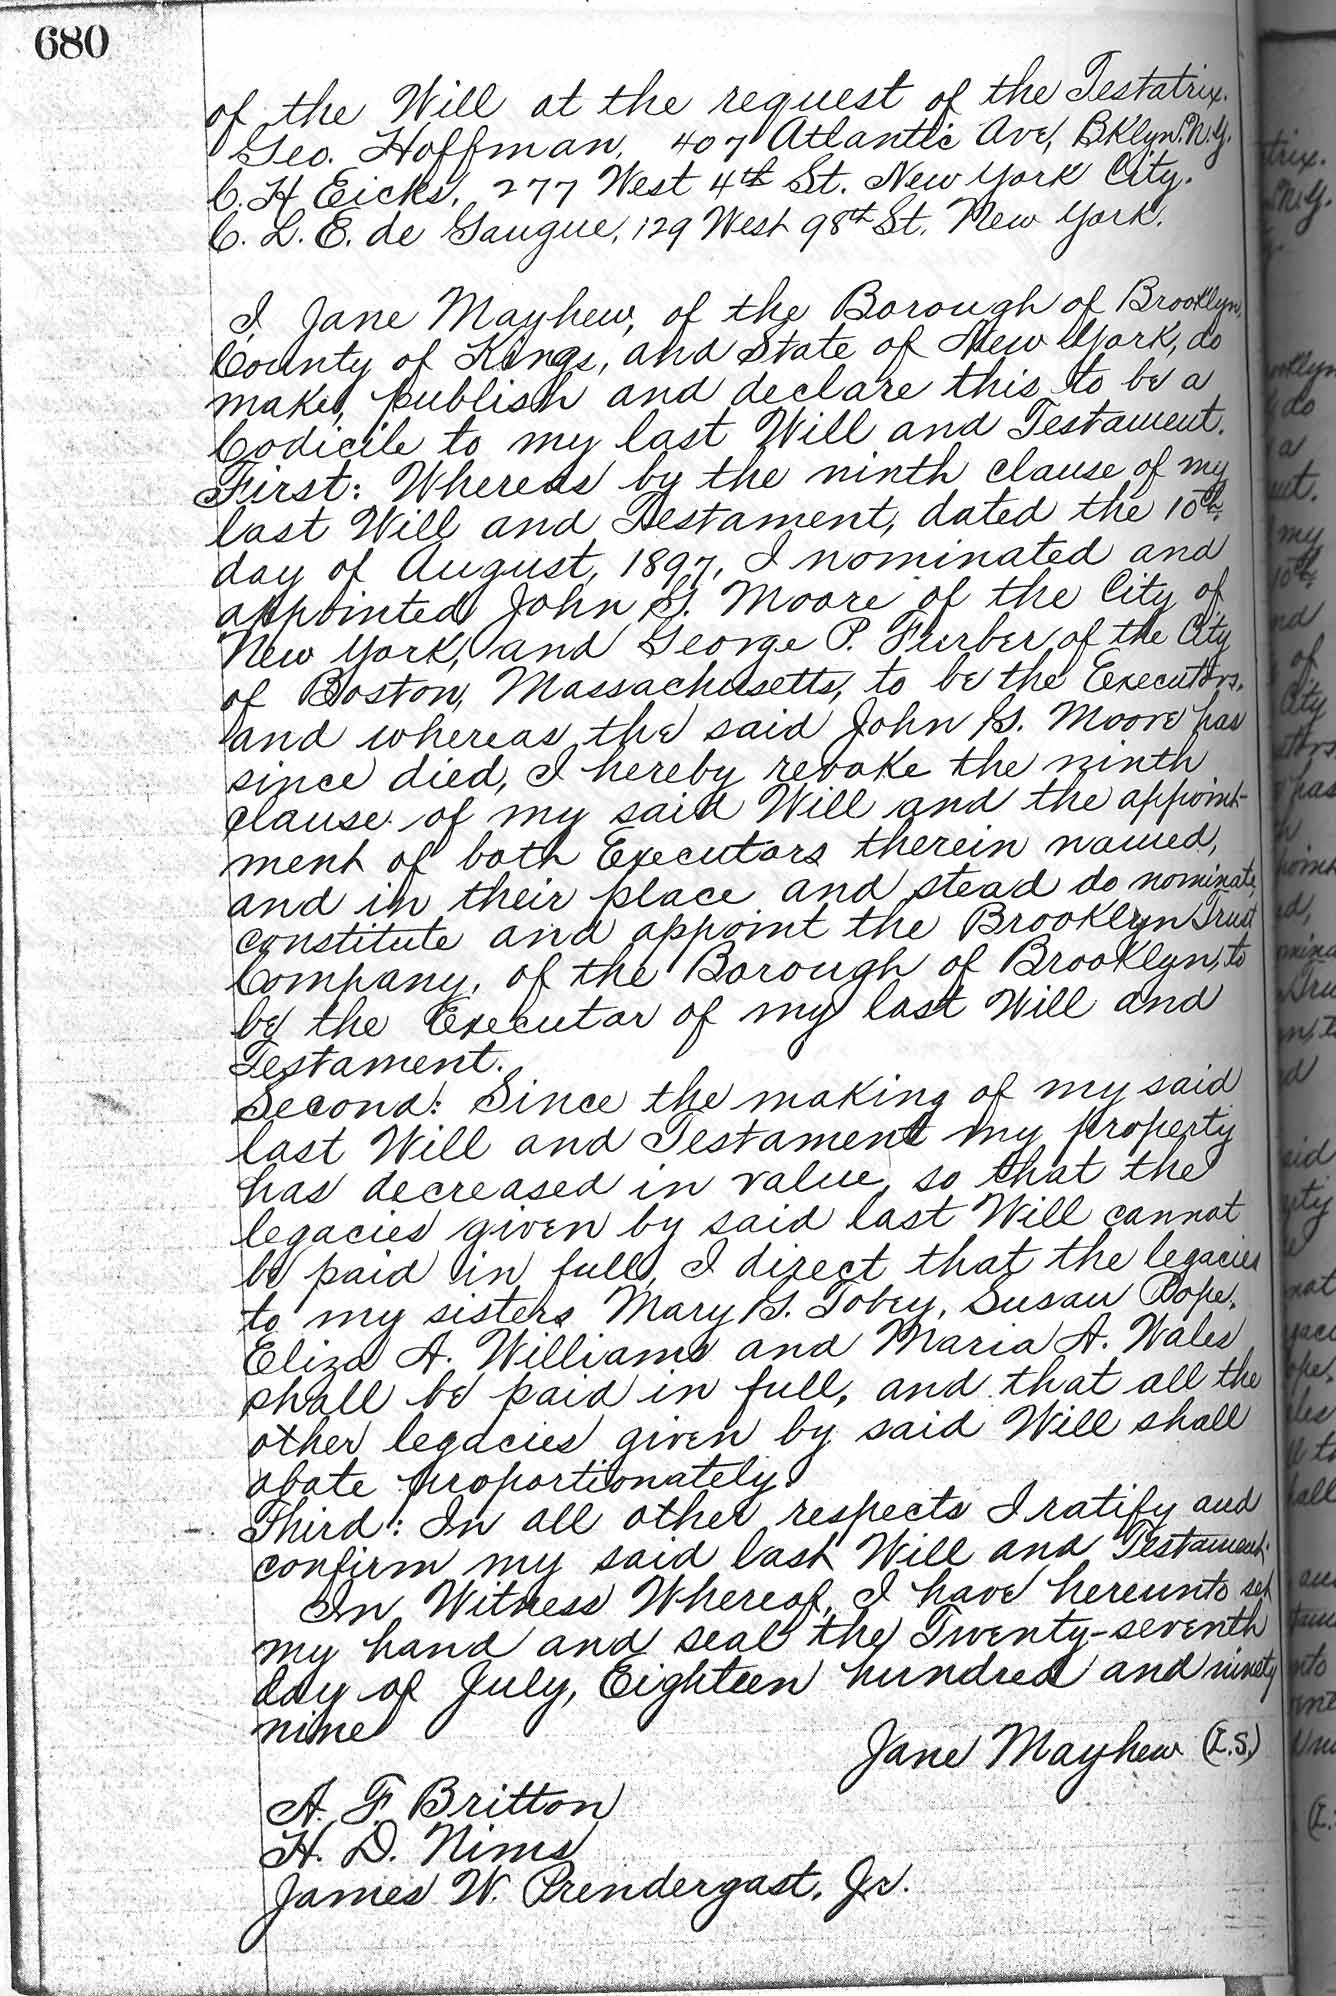 680
of the Will at the request of the Testatrix.
Geo. Hoffman, 407 Atlantic Ave, BKlyn. N.Y.
C. H Eicks, 277 West 4th St. New York City.
C. L. E. de Gaugue, 129 West 98th St. New York.
I Jane Mayhew, of the Borough of Brooklyn,
County of Kings, and State of New York, do
make, publish and declare this to be a
Codicile to my last Will and Testament.
First: Whereas by the ninth clause of my
last Will and Testament, dated the 10th
day of August, 1897, I nominated and
appointed John G. Moore of the City of
New York, and George P. Furber of the City
of Boston, Massachusetts, to be the Executors.
and whereas the said John G. Moore has
since died, I hereby revoke the ninth
clause of my said Will and the appoint-
ment of both Executors therein named,
and in their place and stead do nominate
constitute and appoint the Brooklyn Trust
Company, of the Borough of Brooklyn, to
be the Executor of my last Will and
Testament.
Second: Since the making of my said
last Will and Testament my property
has decreased in value, so that the
legacies given by said last Will cannot
be paid in full, I direct that the legacies
to my sisters Mary G. Tobey, Susan Pope,
Eliza A. Williams and Maria A. Wales
shall be paid in full, and that all the
other legacies given by said Will shall
abate proportionately.
Third: In all other respects I ratify and
confirm my said last Will and Testament.
In Witness Whereof, I have hereunto set
my hand and seal the Twenty-seventh
day of July, Eighteen hundred and ninety
nine
Jane Mayhew (L.S.)
A. F. Britton
H. D. Nims
James W. Prendergast, Jr.